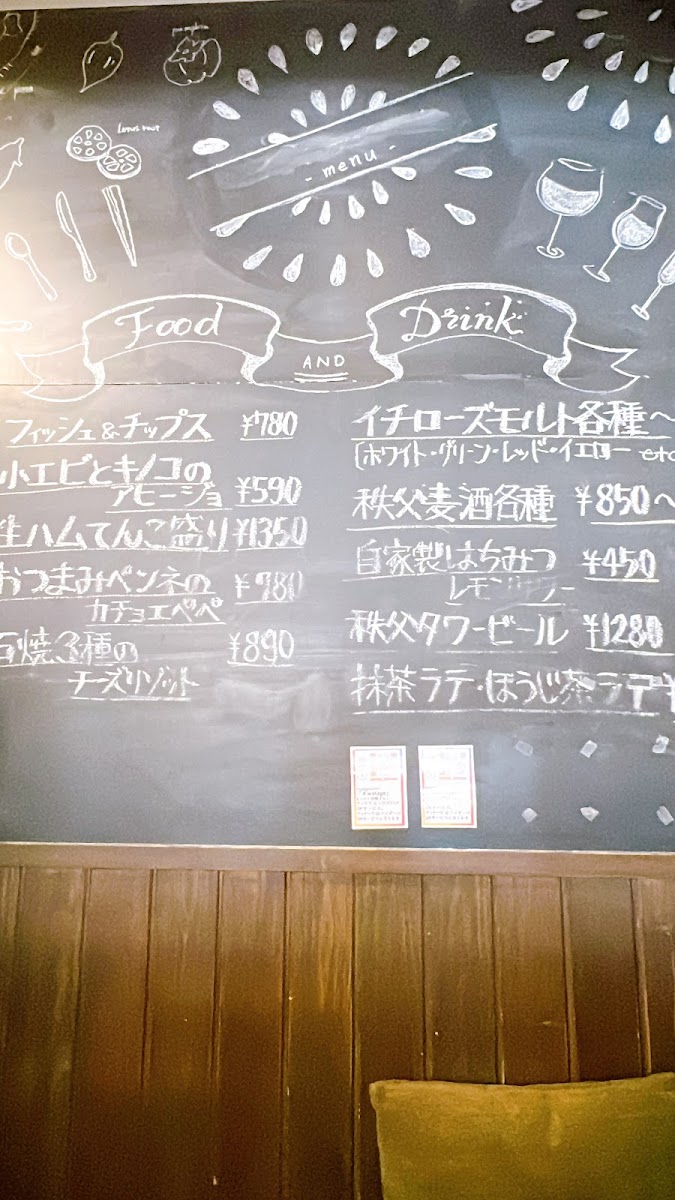 Lotus root
- menu -
Food
AND
Drink
フィッシュ&チップス ¥780
小エビとキノコの
アヒージョ ¥590
生ハムてんこ盛り ¥1350
おつまみペンネの ¥780
カチョエペペ
石焼3種の ¥890
チーズリゾット
イチローズモルト各種〜
(ホワイト・グリーン・レッド・イエロー etc
秩父麦酒各種 ¥850〜
自家製はちみつ ¥450
レモンサワー
秩父タワービール ¥1280
抹茶ラテ・ほうじ茶ラテ ¥